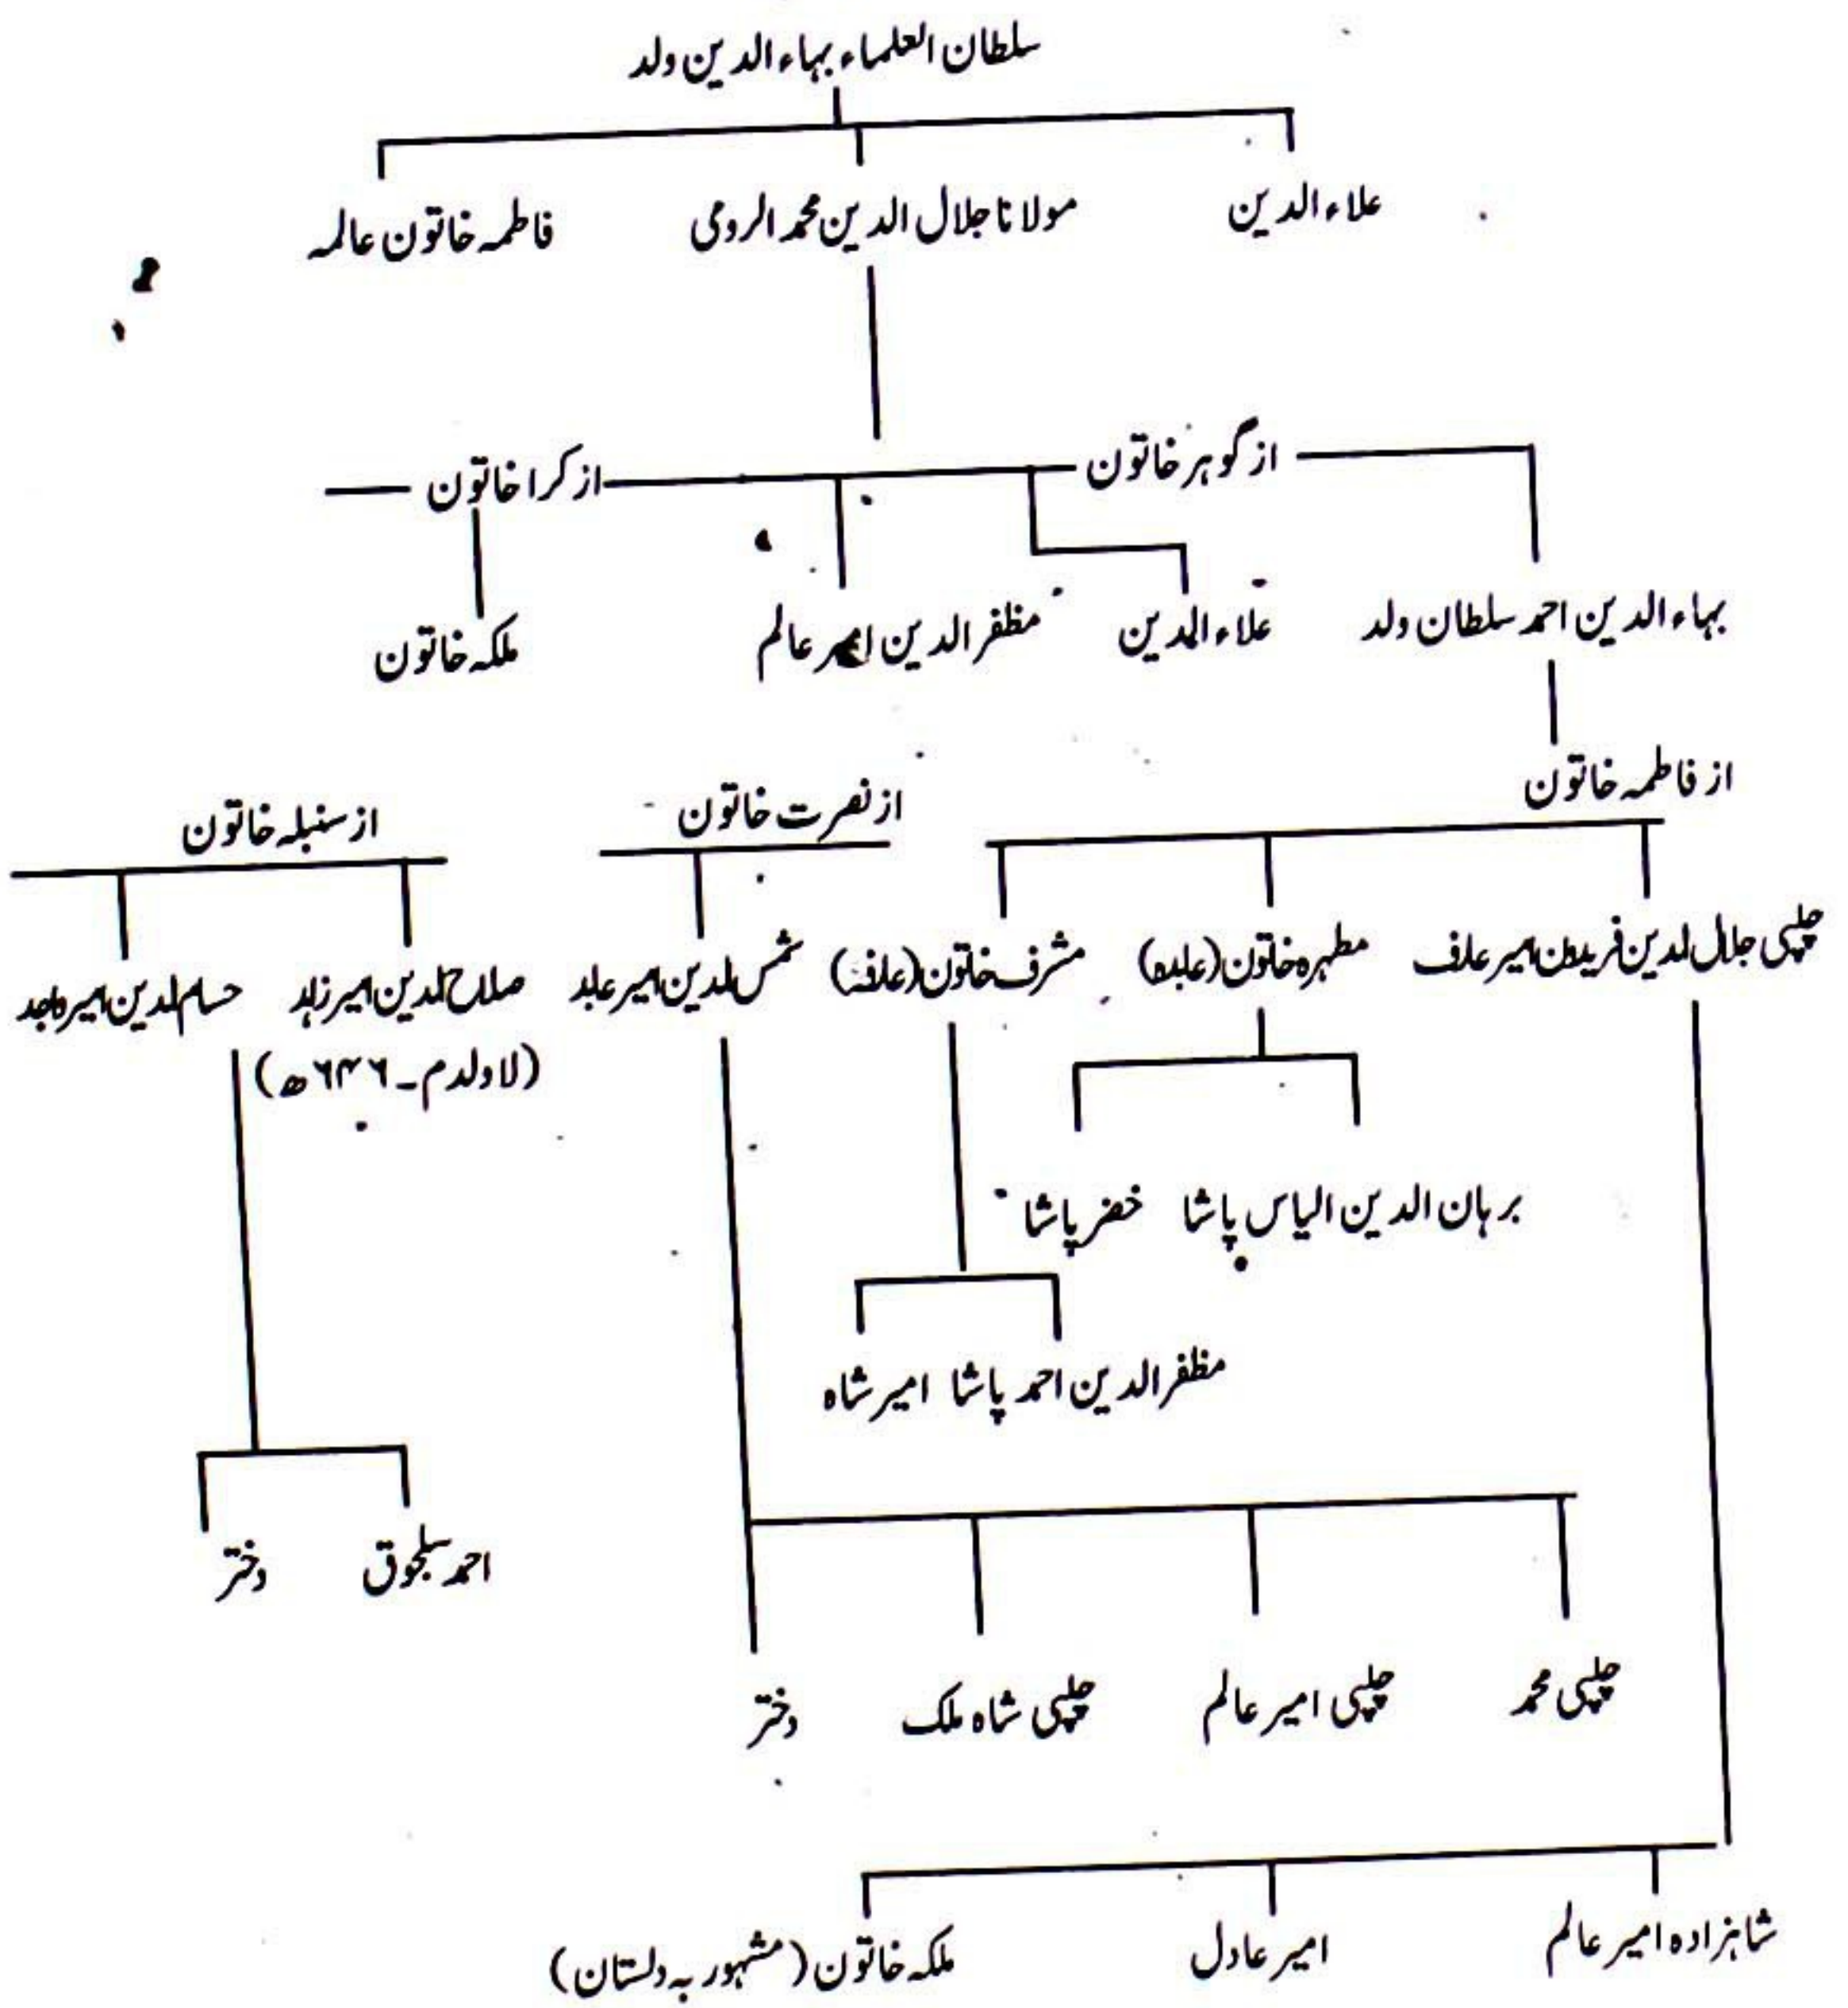 سلطان العلماء بہاء الدین ولد
علاء الدین
مولانا جلال الدین محمد الرومی
فاطمہ خاتون عالمہ
از گوہر خاتون
از کرا خاتون
بہاء الدین احمد سلطان ولد
علاء الدین
مظفر الدین امیر عالم
ملکہ خاتون
از فاطمہ خاتون
از نصرت خاتون
از سنبلہ خاتون
چلپی جلال الدین فریدون امیر عارف
مطہرہ خاتون (عابدہ)
مشرف خاتون (عارفہ)
شمس الدین امیر عابد
صلاح الدین امیر زاہد
(لا ولد م ـ ۶۴۶ ھ)
حسام الدین امیر واجد
برہان الدین الیاس پاشا
خضر پاشا
مظفر الدین احمد پاشا
امیر شاہ
احمد سلجوق
دختر
چلپی محمد
چلپی امیر عالم
چلپی شاہ ملک
دختر
شاہزادہ امیر عالم
امیر عادل
ملکہ خاتون (مشہور بہ دلستان)